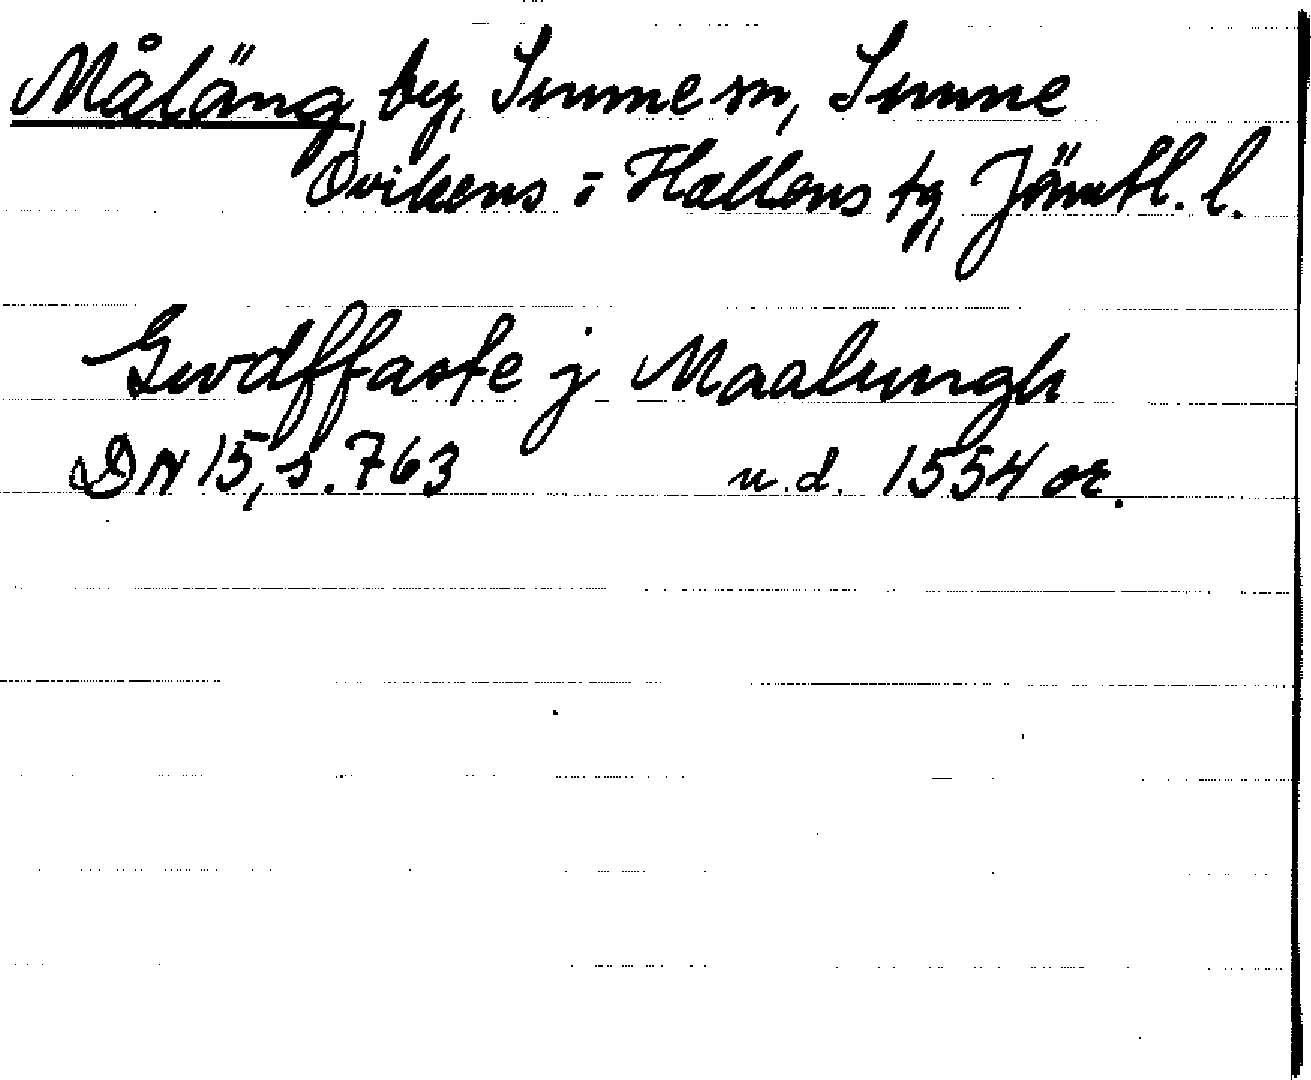 Måläng, by, Sunne sn, Sunne
Ovikens o Hallens tg, Jämtl. l.
Gwdffaste j Maalungh
DN 15, s. 763 u.d. 1554 or.